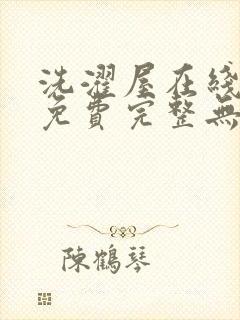 洗濯屋在线
免費完整無
陳鶴琴